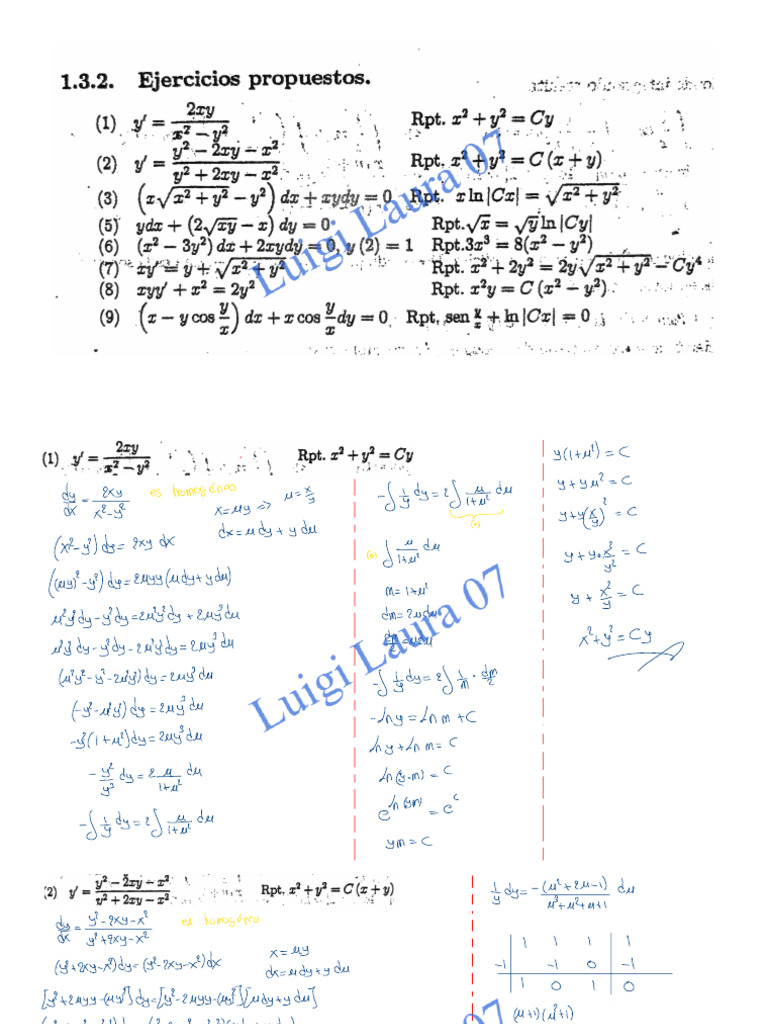 1.3.2. Ejercicios propuestos.
(1) y′ = 2xy / (x² − y²) Rpt. x² + y² = Cy
(2) y′ = (y² − 2xy − x²) / (y² + 2xy − x²) Rpt. x² + y² = C (x + y)
(3) (x√(x² + y² − y²)) dx + xydy = 0 Rpt. x ln |Cx| = √(x² + y²)
(5) ydx + (2√(xy) − x) dy = 0 Rpt. √x = √y ln |Cy|
(6) (x² − 3y²) dx + 2xydy = 0, y (2) = 1 Rpt. 3x³ = 8(x² − y²)
(7) xy′ = y + √(x² + y²) Rpt. x² + 2y² = 2y√(x² + y²) − Cy⁴
(8) xyy′ + x² = 2y² Rpt. x²y = C (x² − y²)
(9) (x − y cos y/x) dx + x cos y/x dy = 0 Rpt. sen y/x + ln |Cx| = 0
Luigi Laura 07
(1) y′ = 2xy / (x² − y²) Rpt. x² + y² = Cy
dy/dx = 2xy / (x² − y²) es homogéneo
x = μy ⇒ μ = x/y
dx = μdy + ydμ
(x² − y²) dy = 2xy dx
((μy)² − y²) dy = 2μyy (μdy + ydμ)
μ²y²dy − y²dy = 2μ²y²dy + 2μy³dμ
μ²y²dy − y²dy − 2μ²y²dy = 2μy³dμ
(μ²y² − y² − 2μ²y²) dy = 2μy³dμ
(−y² − μ²y²) dy = 2μy³dμ
−y²(1 + μ²) dy = 2μy³dμ
− y²/y³ dy = 2 μ/(1+μ²) dμ
−∫ 1/y dy = 2∫ μ/(1+μ²) dμ
−∫ 1/y dy = 2∫ μ/(1+μ²) dμ
(a)
(a) ∫ μ/(1+μ²) dμ
m = 1 + μ²
dm = 2μdμ
dm/2 = μdμ
−∫ 1/y dy = 2∫ 1/m · dm/2
−Ln y = Ln m + C
Ln y + Ln m = C
Ln (y·m) = C
e^(Ln (ym)) = e^c
ym = C
y(1 + μ²) = C
y + yμ² = C
y + y(x/y)² = C
y + y · x²/y² = C
y + x²/y = C
x² + y² = Cy
Luigi Laura 07
(2) y′ = (y² − 2xy − x²) / (y² + 2xy − x²) Rpt. x² + y² = C (x + y)
dy/dx = (y² − 2xy − x²) / (y² + 2xy − x²) es homogéneo
x = μy
dx = μdy + ydμ
(y² + 2xy − x²) dy = (y² − 2xy − x²) dx
[y² + 2μyy − (μy)²] dy = [y² − 2μyy − (μy)²] [μdy + ydμ]
1/y dy = −(μ² + 2μ − 1) / (μ³ + μ² + μ + 1) dμ
1 1 1 1
−1 −1 0 −1
1 0 1 0
(μ+1)(μ²+1)